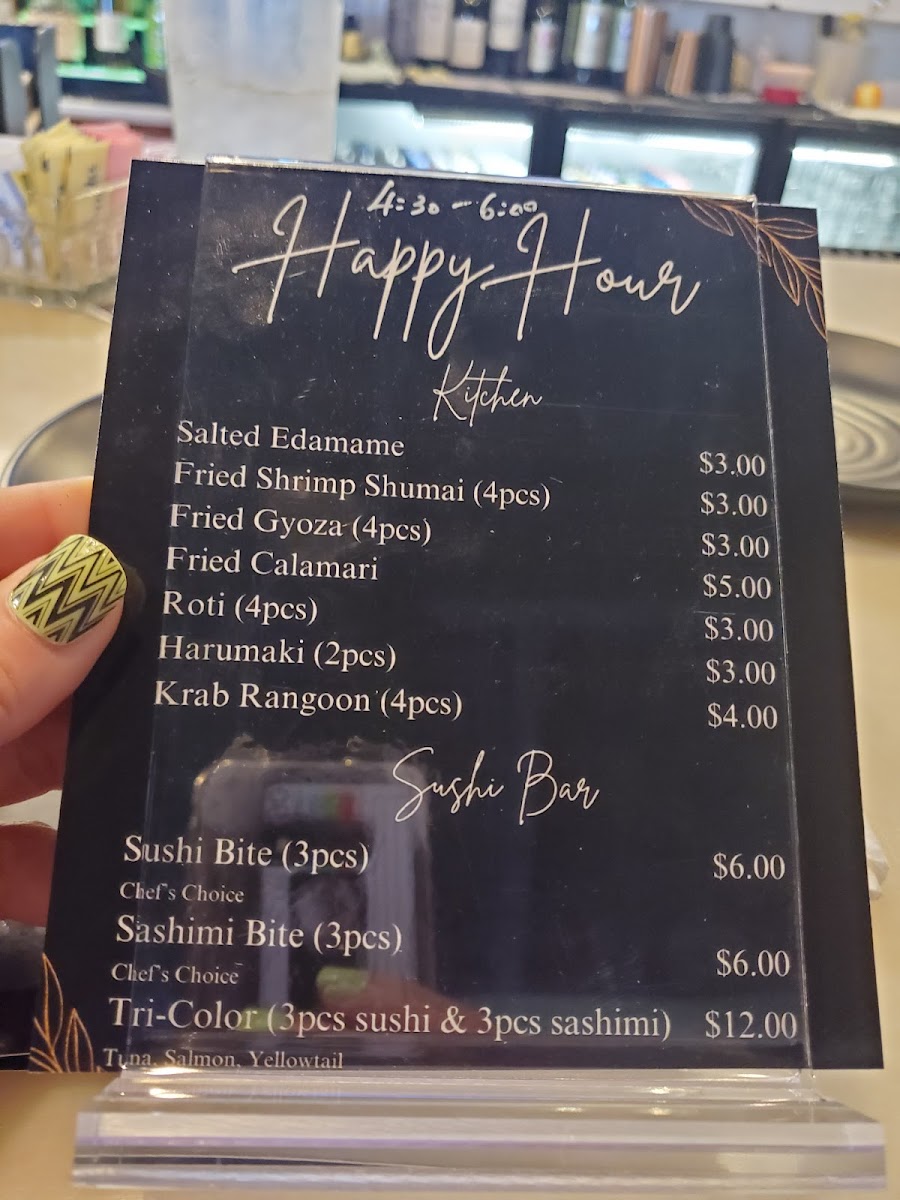 4:30 - 6:00
Happy Hour
Kitchen
Salted Edamame $3.00
Fried Shrimp Shumai (4pcs) $3.00
Fried Gyoza (4pcs) $3.00
Fried Calamari $5.00
Roti (4pcs) $3.00
Harumaki (2pcs) $3.00
Krab Rangoon (4pcs) $4.00
Sushi Bar
Sushi Bite (3pcs) $6.00
Chef's Choice
Sashimi Bite (3pcs) $6.00
Chef's Choice
Tri-Color (3pcs sushi & 3pcs sashimi) $12.00
Tuna, Salmon, Yellowtail